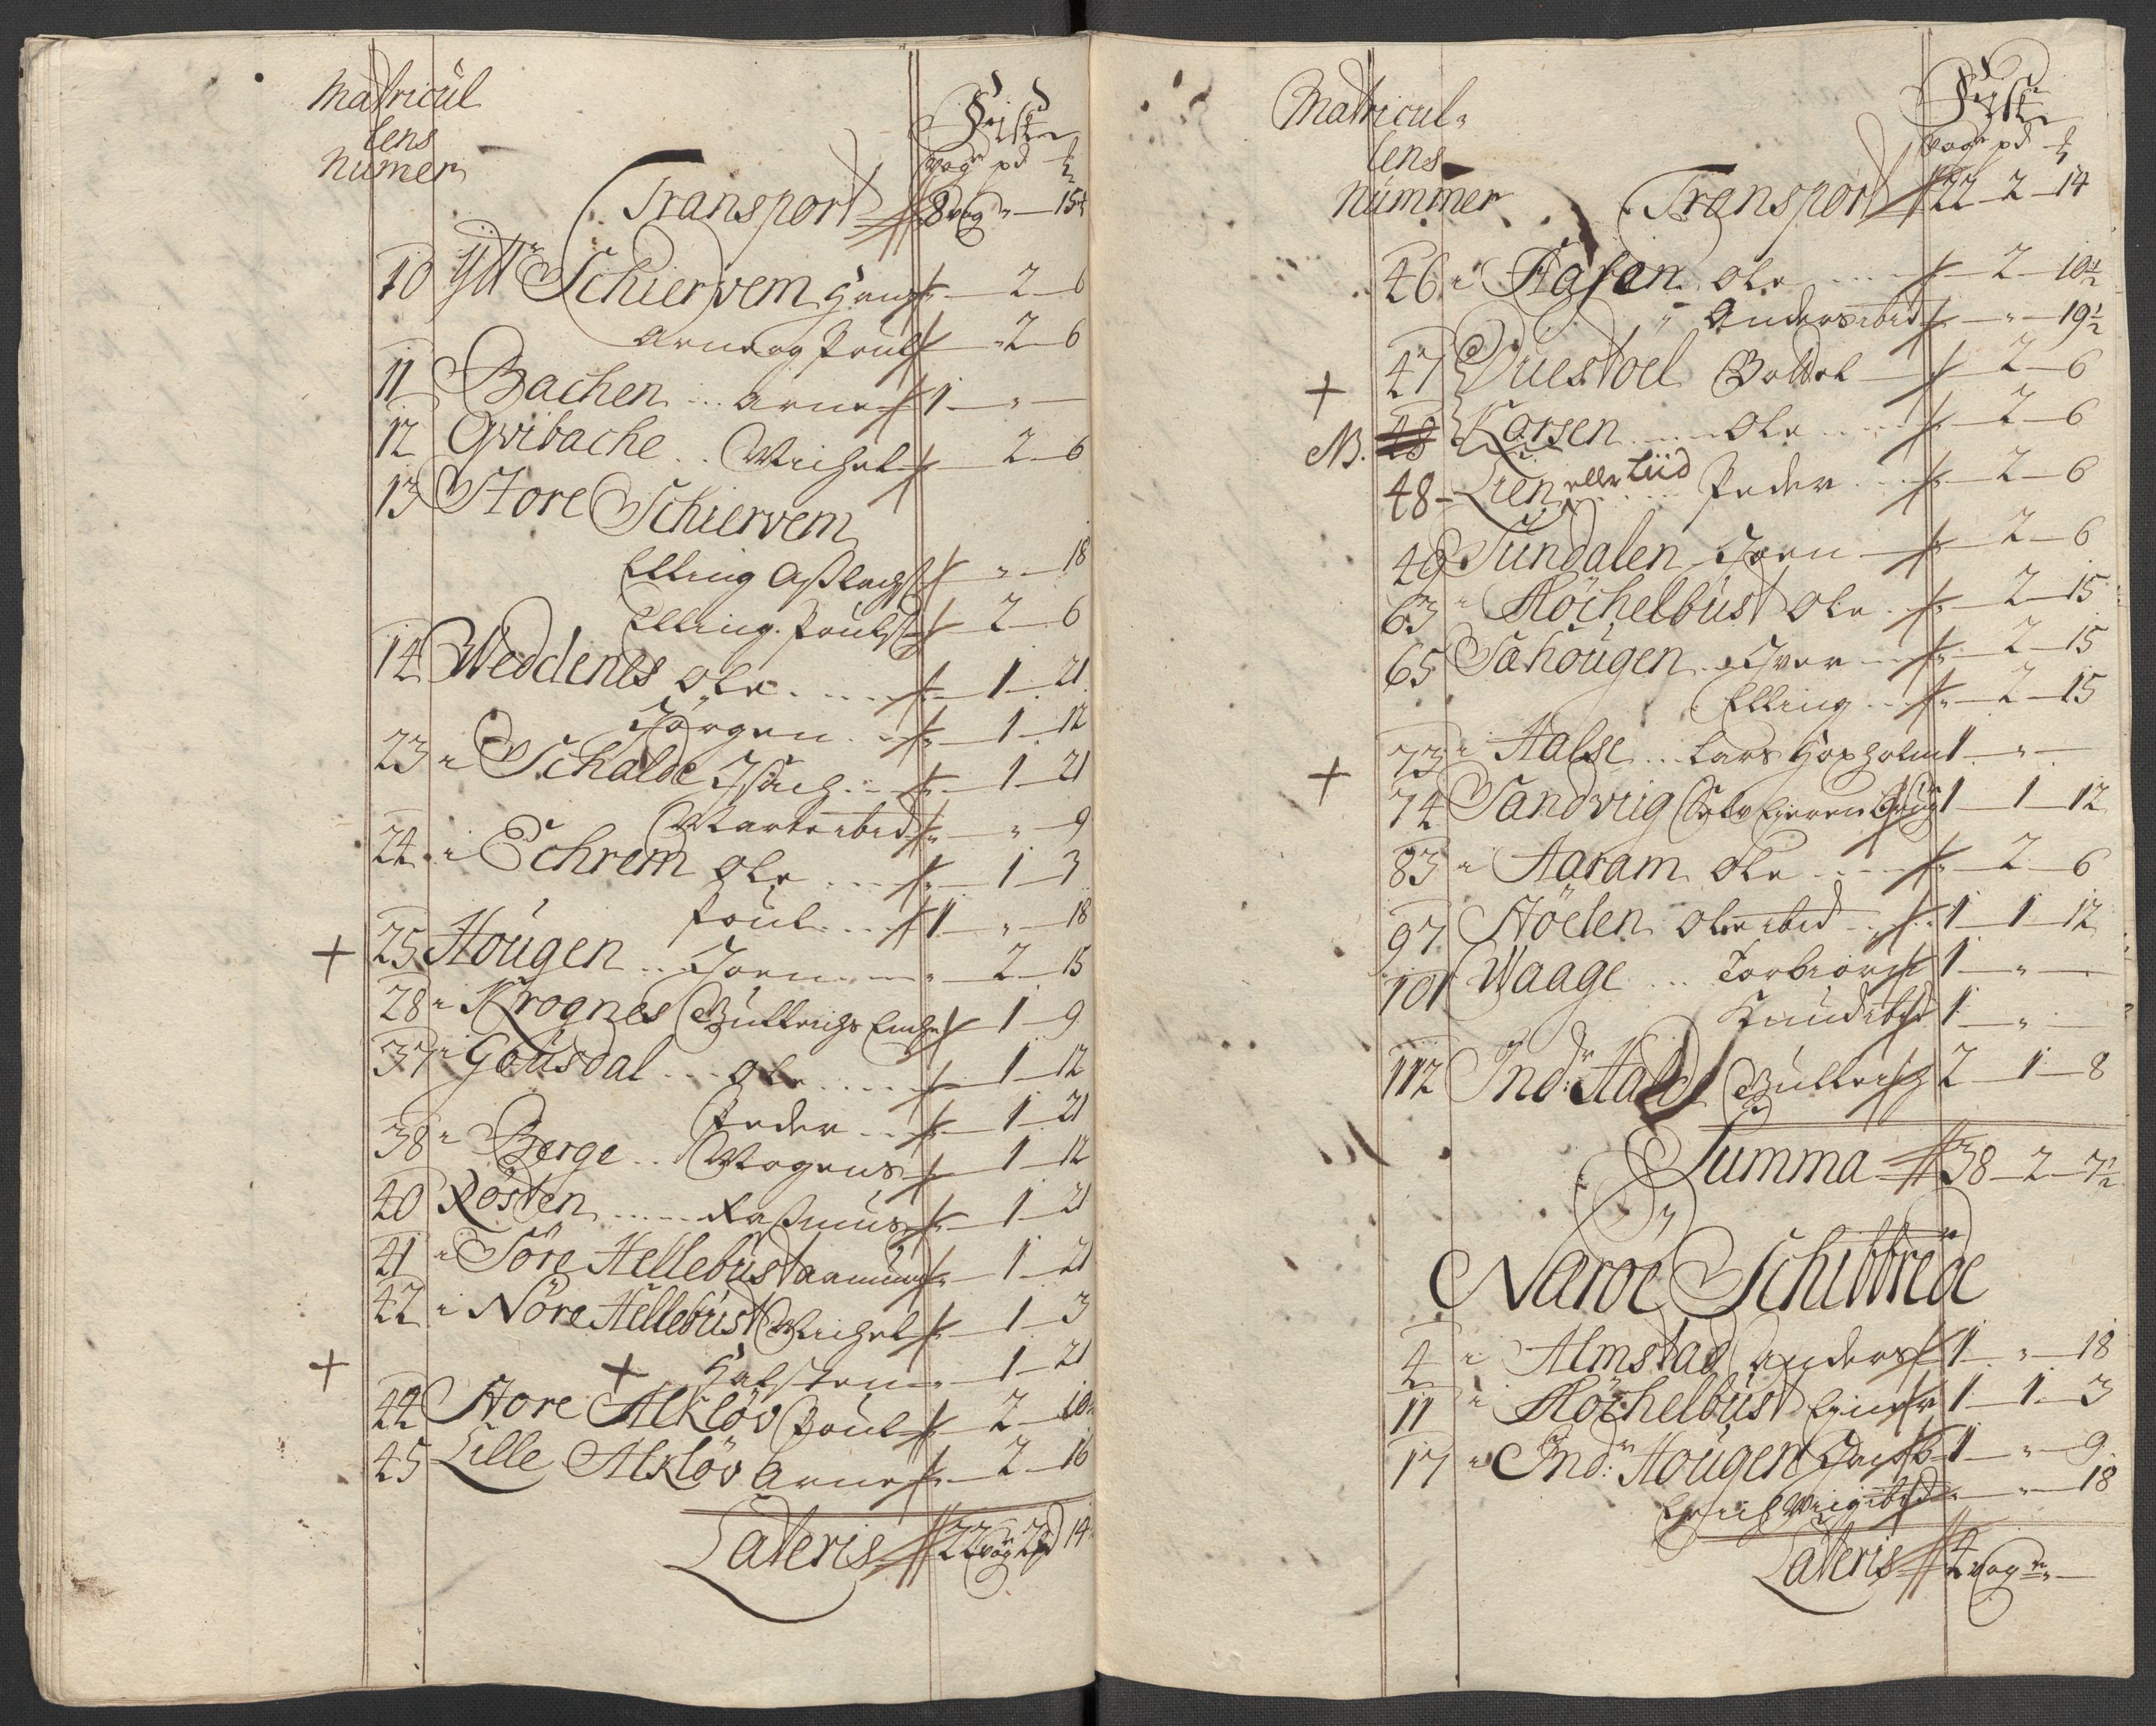 Matricul
lens
Numer
Fiske
vogr pd
Transport 8 vog " 15½
10 Ytt Schiervem Hans 2 6
Arne og Poul 2 6
11 Bachen Arne 1 "
12 Qvibache Michel 2 6
13 Store Schiervem
Elling Aslachs " 18
Elling Pouls 2 6
14 Weddenes Ole 1 21
Jørgen 1 12
23 Schalde Isach 1 21
Marte ibid " 9
24 Echrem Ole 1 3
Poul 1 " 18
+ 25 Hougen Joen 2 15
28 Krognes Bullichs Enche 1 9
37 Gousdal Ole 1 12
Peder 1 21
38 Berge Mogens 1 12
40 Røsten Rasmus 1 21
41 Söre Hellebust 1 21
42 Nöre Hellebust Michel 1 3
+ + Halsten 1 21
44 Store Alkløv Poul 2 10½
45 Lille Alkløv Arne 2 16
Lateris 22 vog 2 pd 14
Matricul
lens
Nummer
Fiske
vogr pd
Transport 22 2 14
46 Hafsen Ole 2 10½
Anders ibid " 19½
+ 47 Duestoel Bottel 2 6
NB. 48 Korsen Ole 2 6
48 Lien elle Liid Peder 2 6
49 Sundalen Joen 2 6
63 Röchelbust Ole 2 15
65 Sahougen Iver 2 15
Elling 2 15
73 Halse Lars Hopholm 1 "
+ 74 Sandviig Selv Eieren 1 1 12
83 Haram Ole 2 6
97 Støelen Ole ibid 1 1 12
101 Waage Torbiørn 1 "
Knud ibid 1 "
112 Indr Halde Bullich 2 1 8
Summa 38 2 7½
Naroe Schibbrede
4 Almstad Anders 1 " 18
11 Röchelbust Einer 1 1 3
17 Indr Hougen 1 " 9
ibid " 18
Lateris 4 vogr "